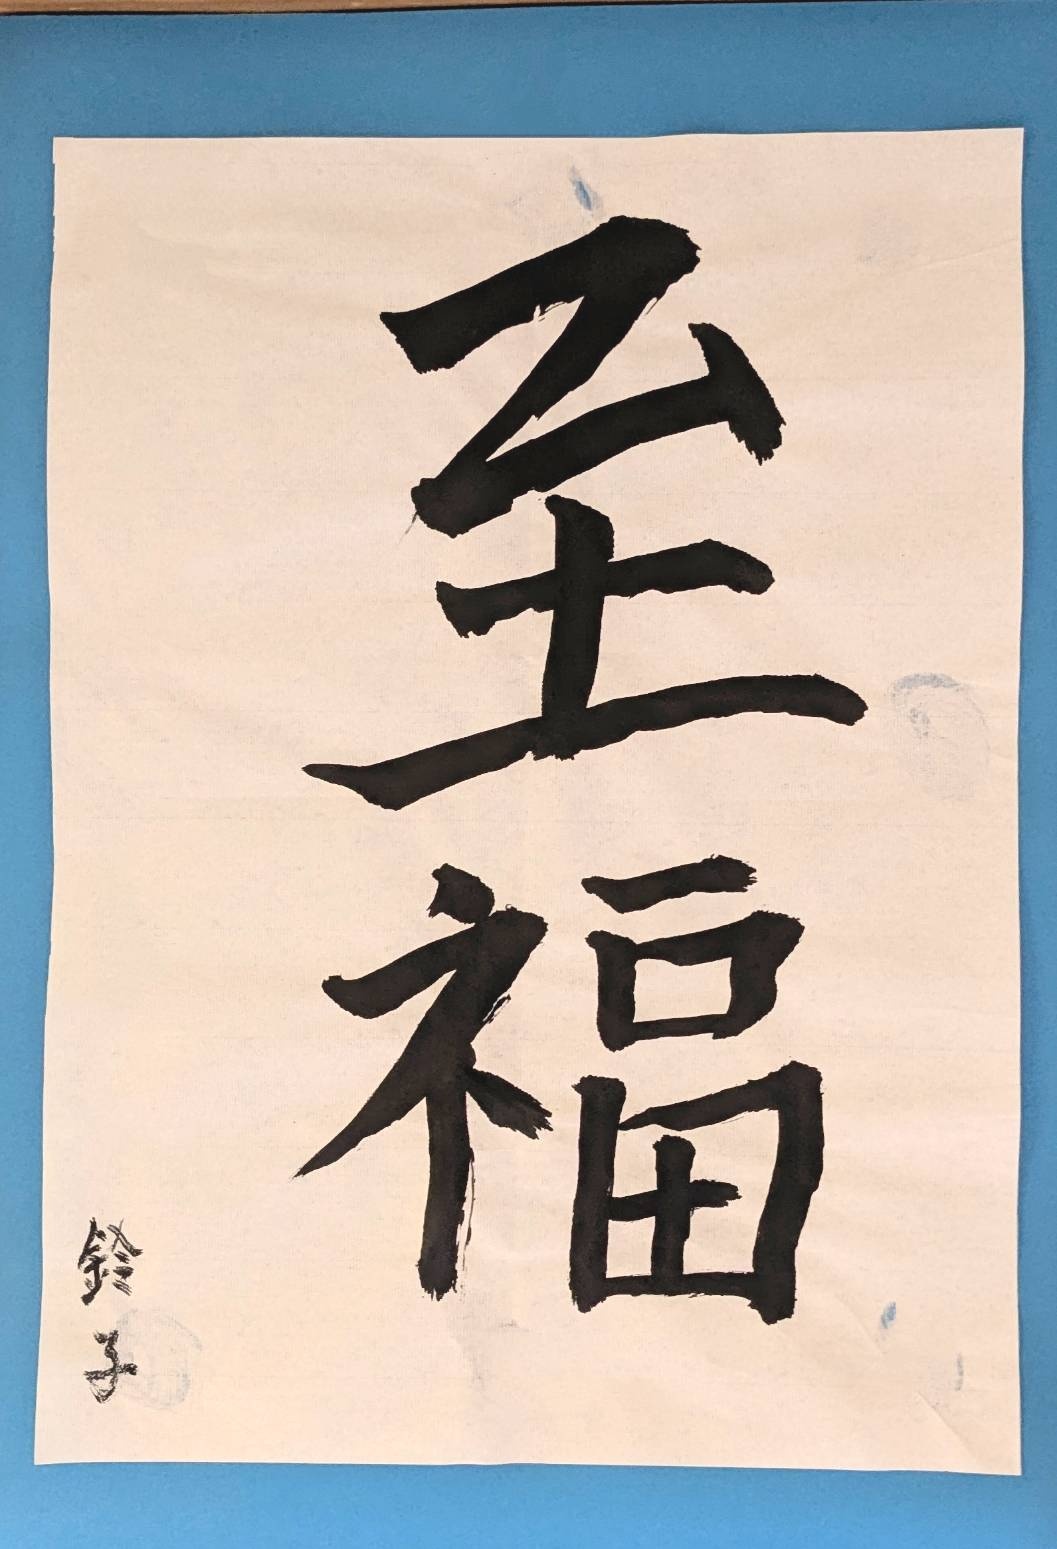 至福
鈴子